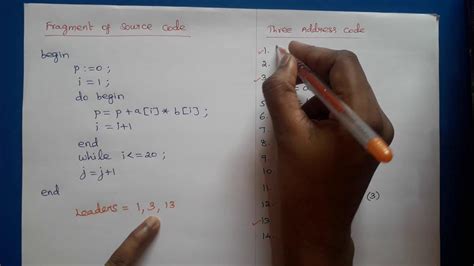 Fragment of Source Code
begin
p:=0;
i=1;
do begin
p=p+a[i]*b[i];
i=i+1
end
while i<=20;
j=j+1
end
Leaders = 1, 3, 13
Three Address Code
1.
2.
3.
5.
6.
7.
8.
9.
10
11
12
(3)
13.
14